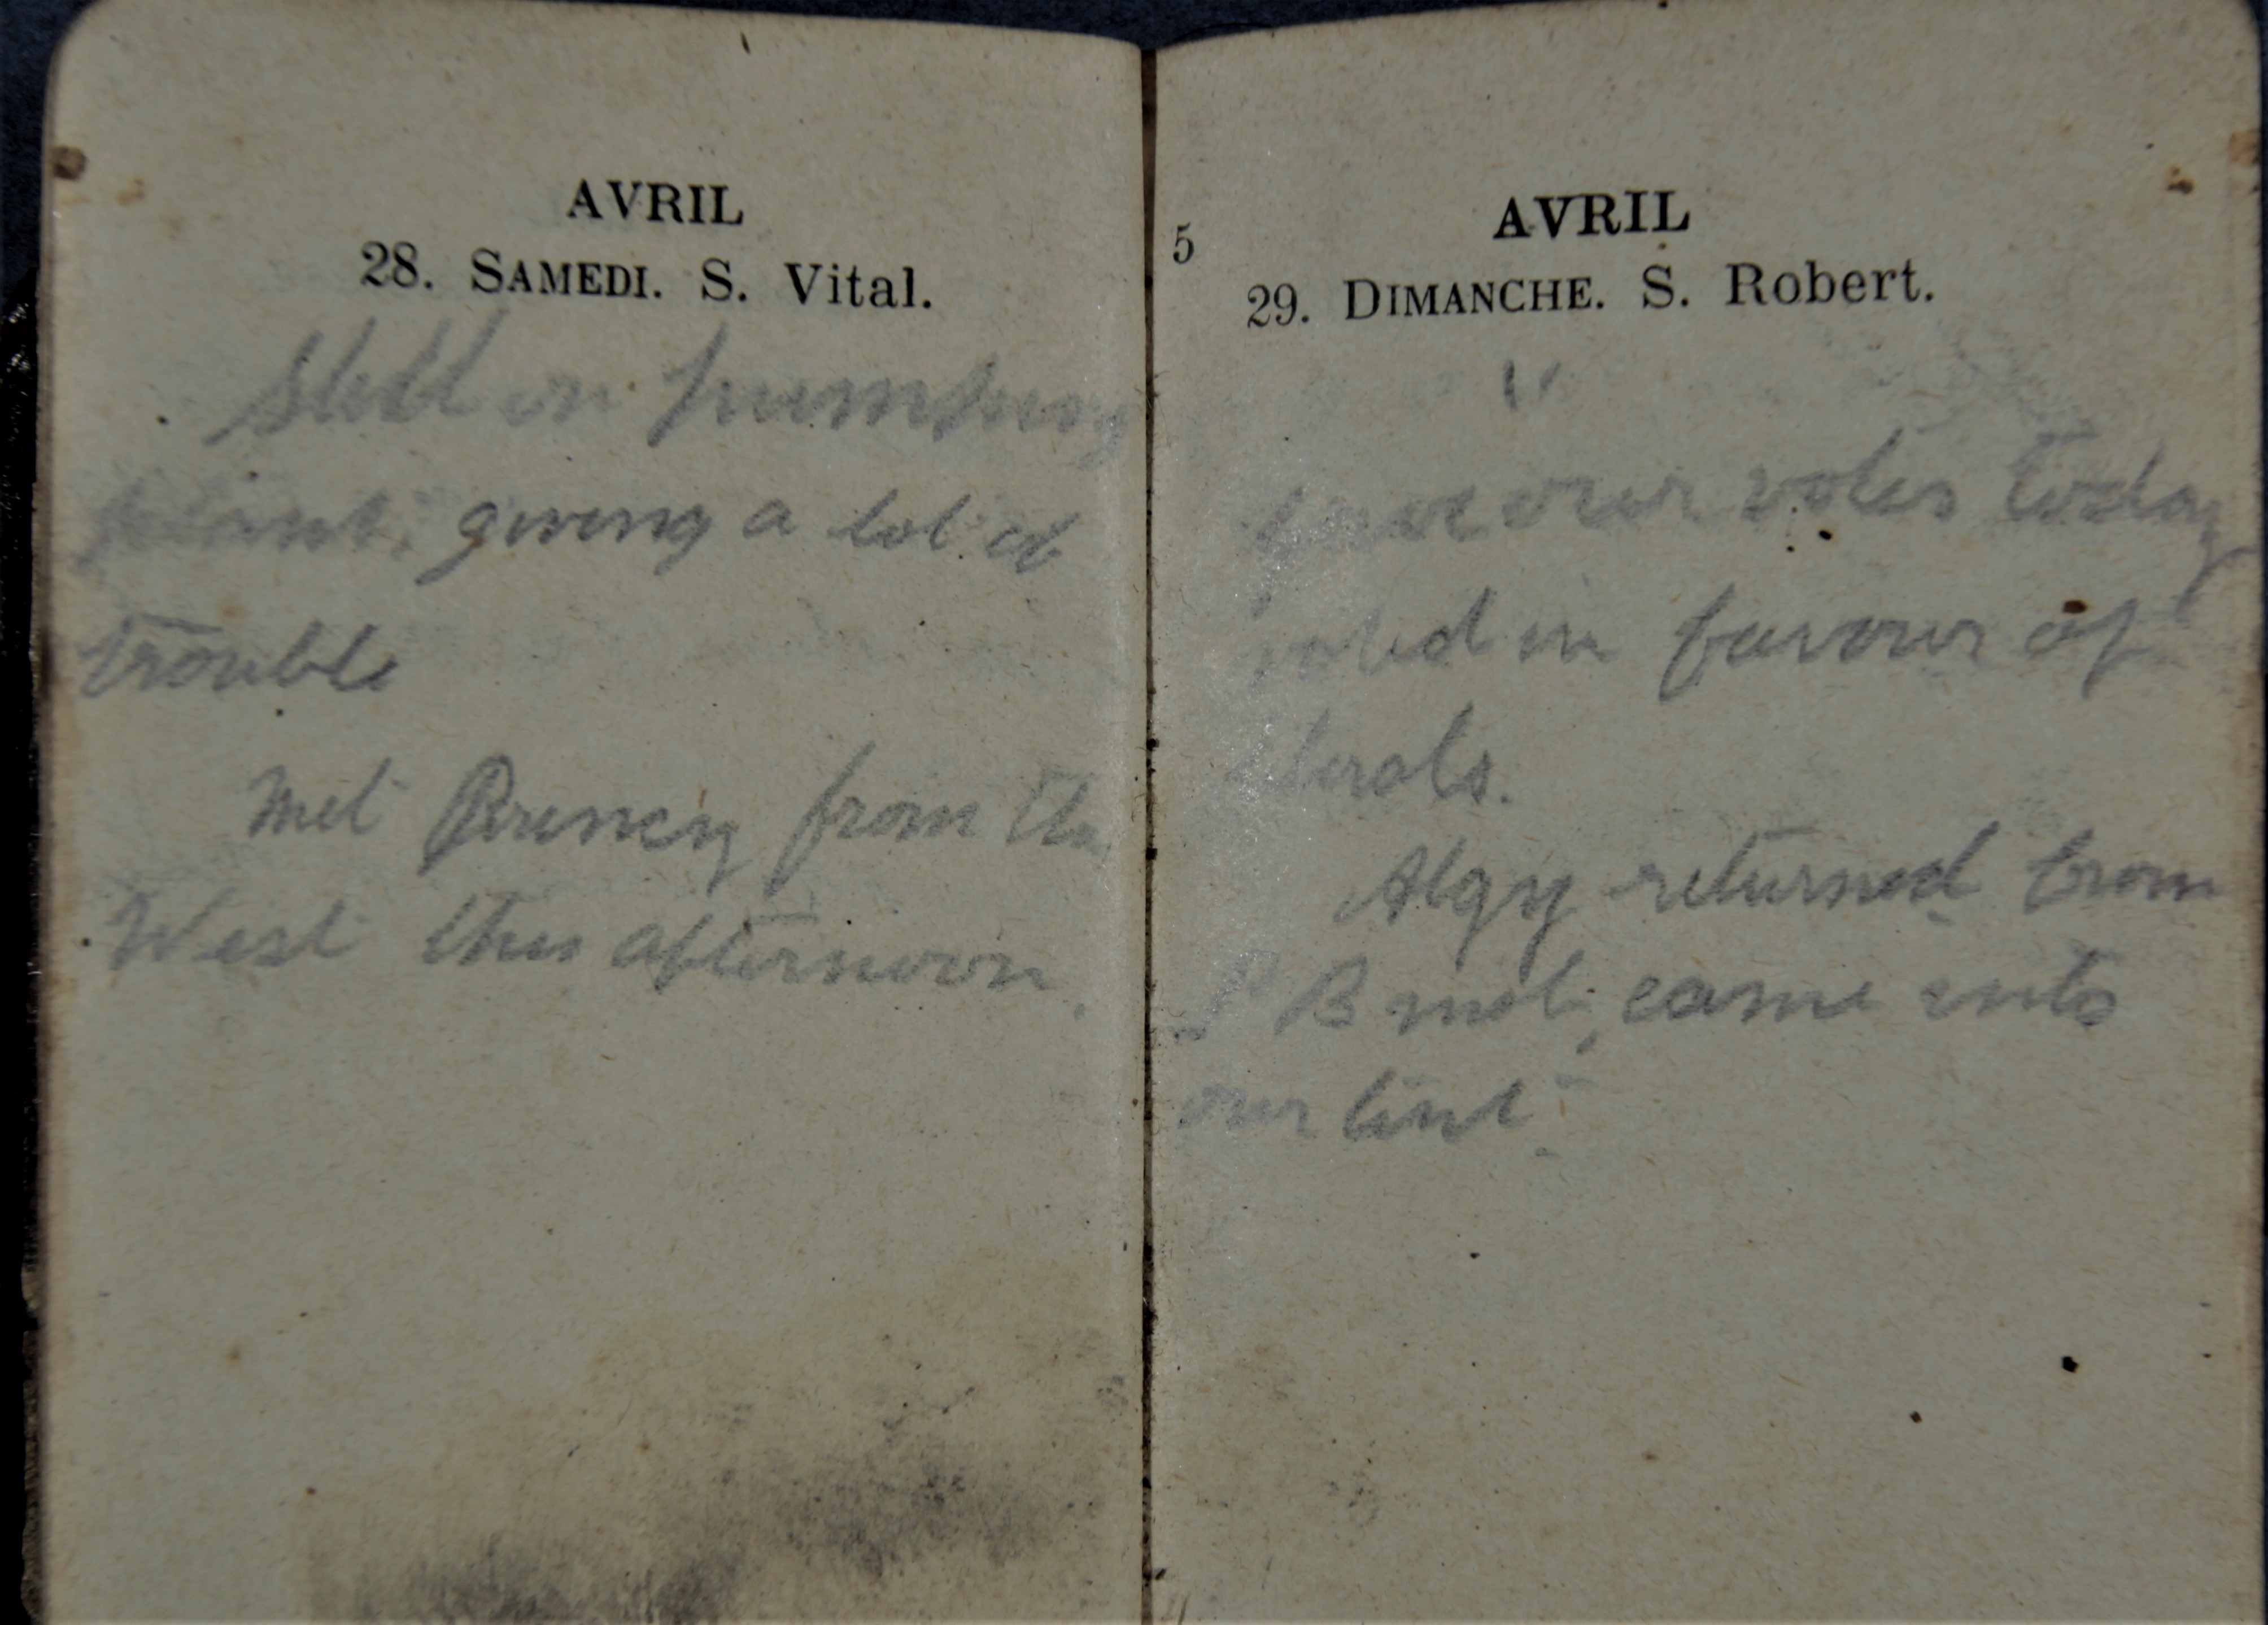 AVRIL
28. SAMEDI. S. Vital.
Still on pumping
plant, giving a lot of
trouble
Met from the
West this afternoon.
5
AVRIL
29. DIMANCHE. S. Robert.
"
gave our votes today
voted in favour of
Algy returned from
P B met, came into
our tent